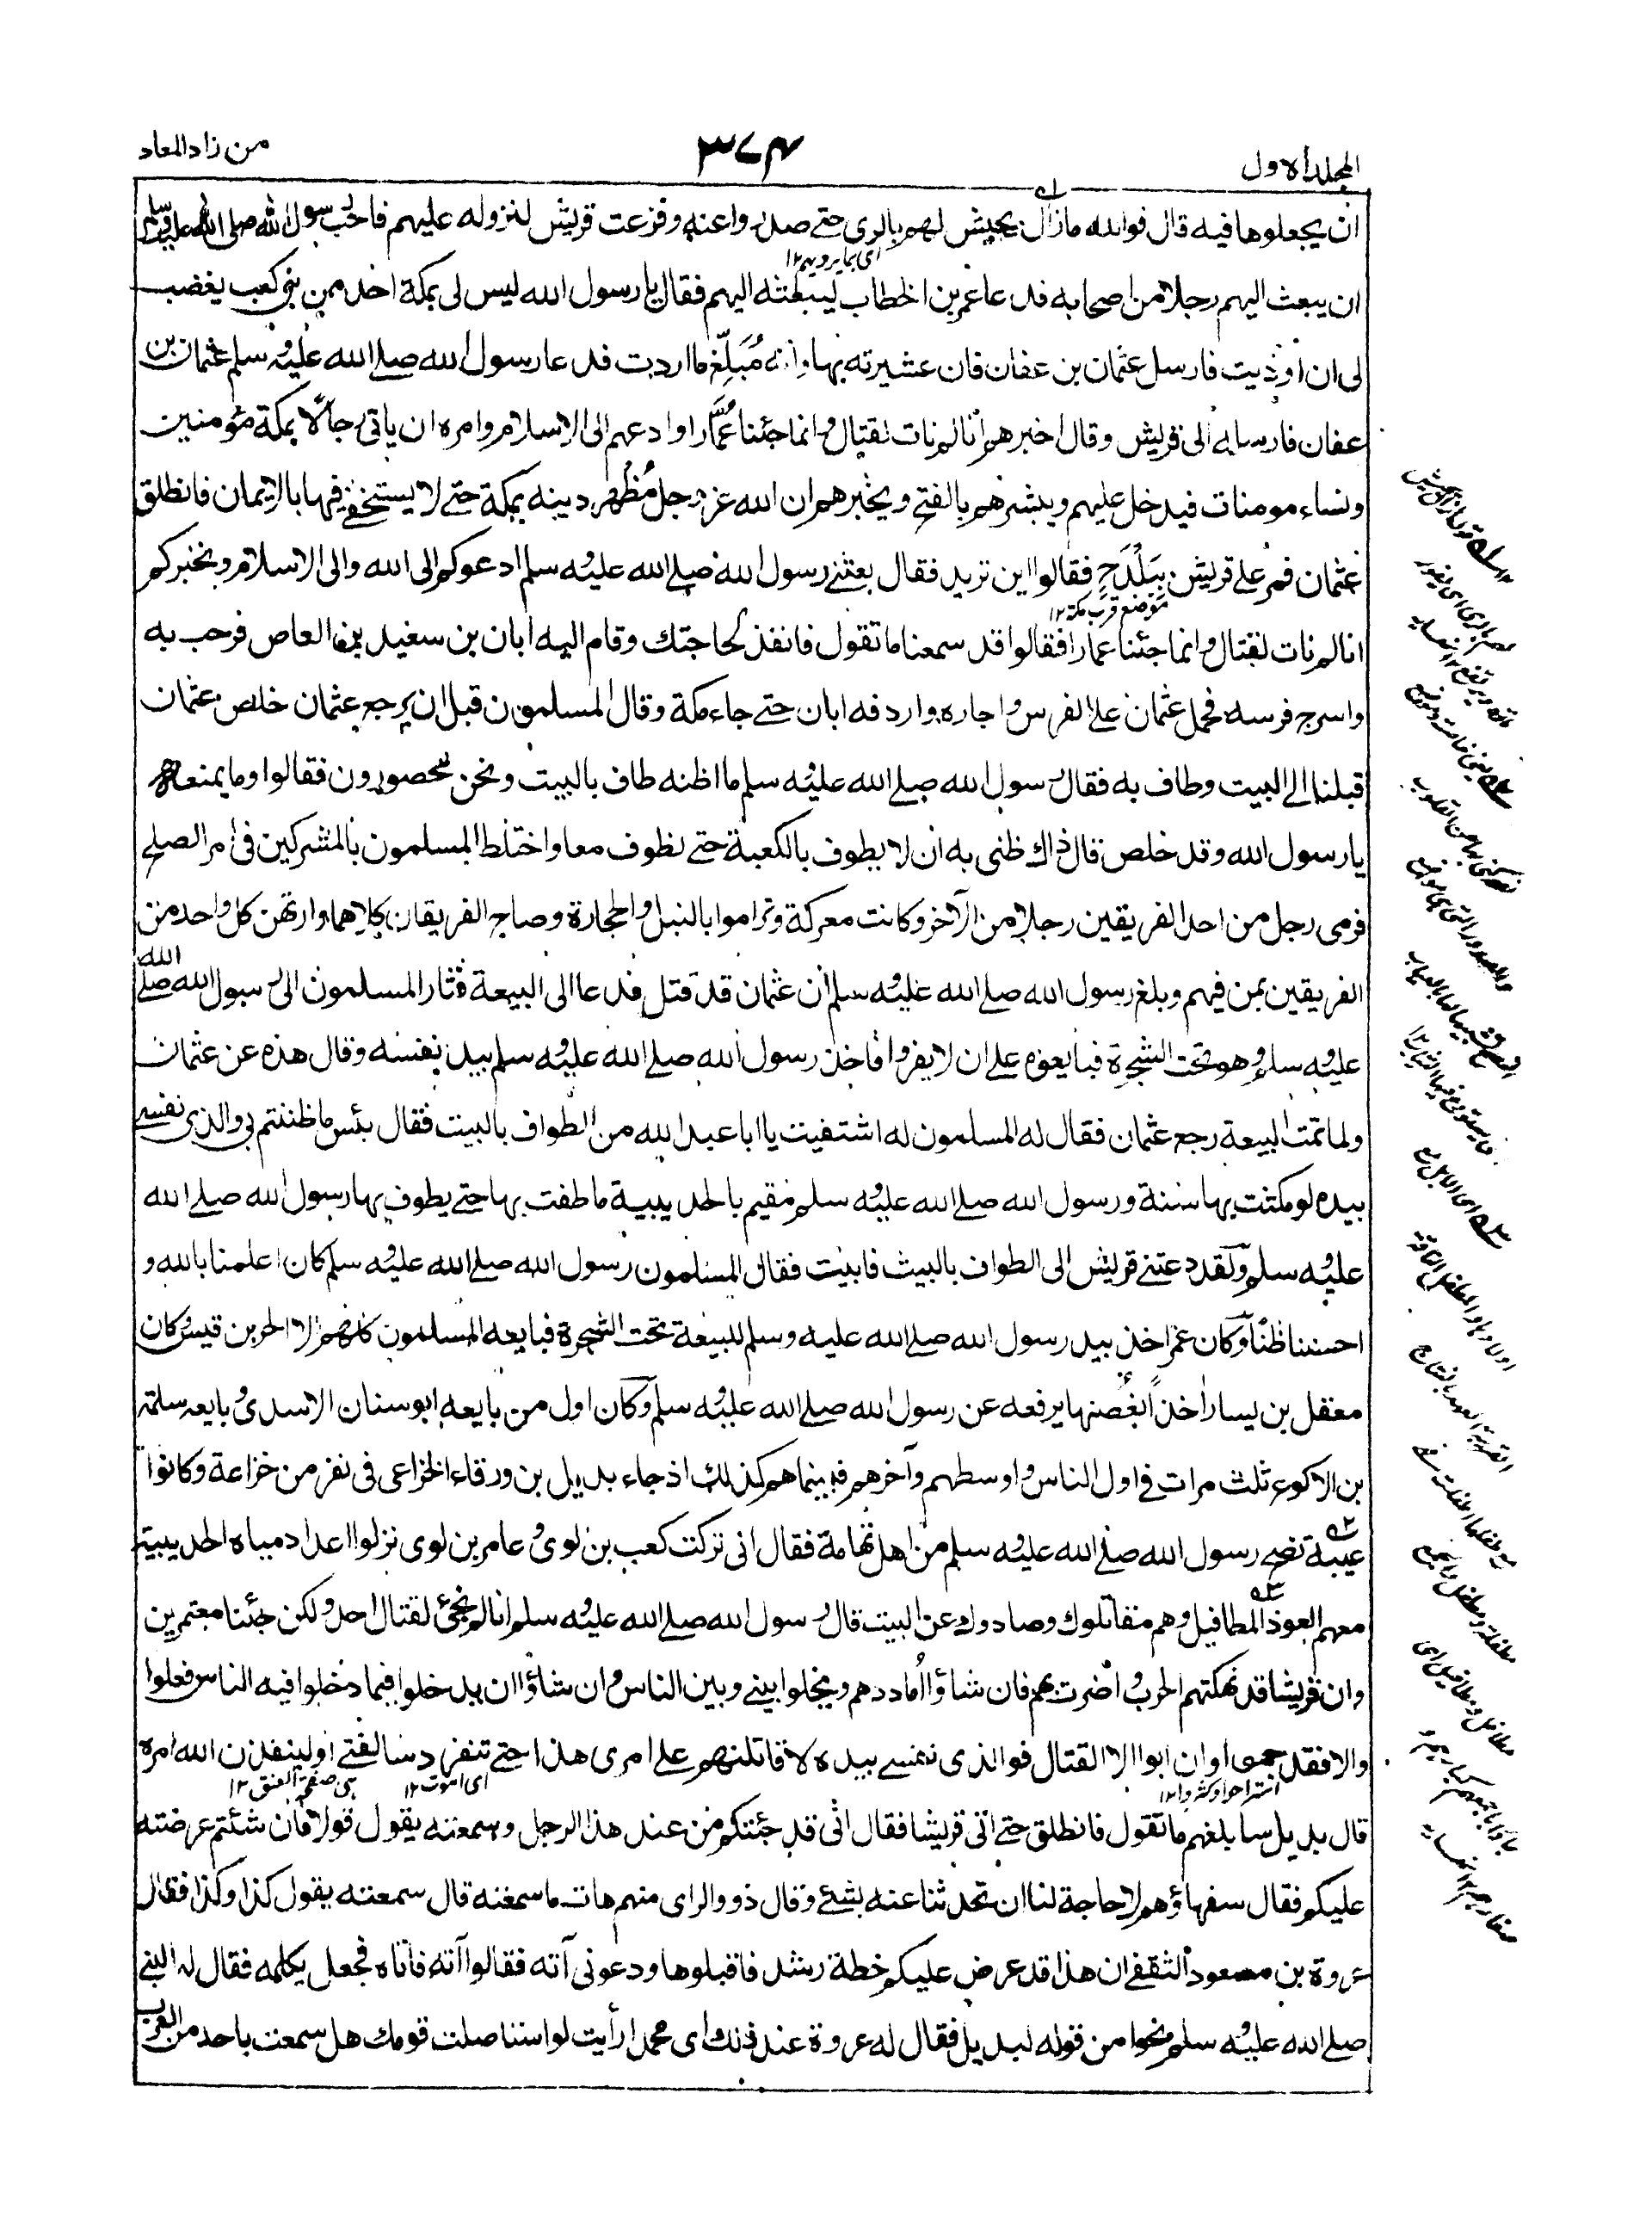 المجلد الاول
٣٧٤
من زاد المعاد
ان يجعلوها فيه قال فوالله مازال يجيش لهم بالري حتے صدروا عنه وفزعت قريش لنزوله عليهم فاحب رسول الله صلى الله عليه وسلم
اى بما يرويهم ١٢
ان يبعث اليهم رجلا من اصحابه فدعا عمر بن الخطاب ليبعثه اليهم فقال يا رسول الله ليس لى بمكة احد من بنى كعب يغضب
لى ان اوذيت فارسل عثمان بن عفان فان عشيرته بها وانه مُبَلِّغ ما اردت فدعا رسول الله صلے الله عليه وسلم عثمان بن
عفان فارسله الى قريش وقال اخبرهم انا لم نات لقتال وانما جئنا عُمَّارا وادعهم الى الاسلام وامره ان ياتى رجالا بمكة مؤمنين
ونساء مومنات فيدخل عليهم ويبشرهم بالفتح ويخبرهم ان الله عز وجل مُظْهِر دينه بمكة حتے لا يستخفے فيها بالايمان فانطلق
عثمان فمر علے قريش بِبَلْدَحٍ فقالوا اين تريد فقال بعثنے رسول الله صلے الله عليه وسلم ادعوكم الى الله والى الاسلام ونخبركم
موضع قرب مكة ١٢
انا لم نات لقتال وانما جئنا عمارا فقالوا قد سمعنا ما تقول فانفذ لحاجتك وقام اليه ابان بن سعيد بن العاص فرحب به
واسرج فرسه فحمل عثمان علے الفرس واجاره واردفه ابان حتے جاء مكة وقال المسلمون قبل ان يرجع عثمان خلص عثمان
قبلنا الے البيت وطاف به فقال رسول الله صلے الله عليه وسلم ما اظنه طاف بالبيت ونحن محصورون فقالوا وما يمنعه
يا رسول الله وقد خلص قال ذاك ظنى به ان لا يطوف بالكعبة حتے نطوف معا واختلط المسلمون بالمشركين فى امر الصلح
فرمى رجل من احد الفريقين رجلا من الآخر وكانت معركة وتراموا بالنبل والحجارة وصاح الفريقان كلاهما وارتهن كل واحد من
الفريقين بمن فيهم وبلغ رسول الله صلے الله عليه وسلم ان عثمان قد قتل فدعا الى البيعة فثار المسلمون الى رسول الله صلے الله
عليه وسلم وهو تحت الشجرة فبايعوه علے ان لا يفروا فاخذ رسول الله صلے الله عليه وسلم بيد نفسه وقال هذه عن عثمان
ولما تمت البيعة رجع عثمان فقال له المسلمون له اشتفيت يا ابا عبد الله من الطواف بالبيت فقال بئس ما ظننتم بى والذى نفسے
بيده لو مكثت بها سنة ورسول الله صلے الله عليه وسلم مقيم بالحديبية ما طفت بها حتے يطوف بها رسول الله صلے الله
عليه وسلم ولقد دعتنے قريش الى الطواف بالبيت فابيت فقال المسلمون رسول الله صلے الله عليه وسلم كان اعلمنا بالله و
احسننا ظنا وكان عمر اخذ بيد رسول الله صلے الله عليه وسلم للبيعة تحت الشجرة فبايعه المسلمون كلهم الا الحر بن قيس وكان
معقل بن يسار اخذا بغصنها يرفعه عن رسول الله صلے الله عليه وسلم وكان اول من بايعه ابو سنان الاسدى وبايعه سلمة
بن الاكوع ثلث مرات فے اول الناس واوسطهم وآخرهم فبينما هم كذلك اذ جاء بديل بن ورقاء الخزاعى فى نفر من خزاعة وكانوا
عيبة نصح رسول الله صلے الله عليه وسلم من اهل تهامة فقال انى تركت كعب بن لوى وعامر بن لوى نزلوا اعداد مياه الحديبية
معهم العوذ المطافيل وهم مقاتلوك وصادوك عن البيت قال رسول الله صلے الله عليه وسلم انا لم نجئ لقتال احد ولكن جئنا معتمرين
وان قريشا قد نهكتهم الحرب واضرت بهم فان شاؤا اُماددهم ويخلوا بينے وبين الناس وان شاؤا ان يدخلوا فيما دخلوا فيه الناس فعلوا
والا فقد جموا وان ابوا الا القتال فوالذى نفسے بيده لاقاتلنهم علے امرى هذا حتے تنفرد سالفتے اولينفذن الله امره
استراحوا وكثروا ١٢ اى اموت ١٢ هى صفحة العنق ١٢
قال بديل سابلغهم ما تقول فانطلق حتے اتى قريشا فقال انى قد جئتكم من عند هذا الرجل وسمعته يقول قولا فان شئتم عرضته
عليكم فقال سفهاؤهم لا حاجة لنا ان تحدثنا عنه بشئے وقال ذووالراى منهم هات ما سمعته قال سمعته يقول كذا وكذا فقال
عروة بن مسعود الثقفے ان هذا قد عرض عليكم خطة رشد فاقبلوها ودعونى آته فقالوا آته فاتاه فجعل يكلمه فقال له النبے
صلے الله عليه وسلم نحوا من قوله لبديل فقال له عروة عند ذلك اى محمد ارأيت لو استاصلت قومك هل سمعت باحد من العرب